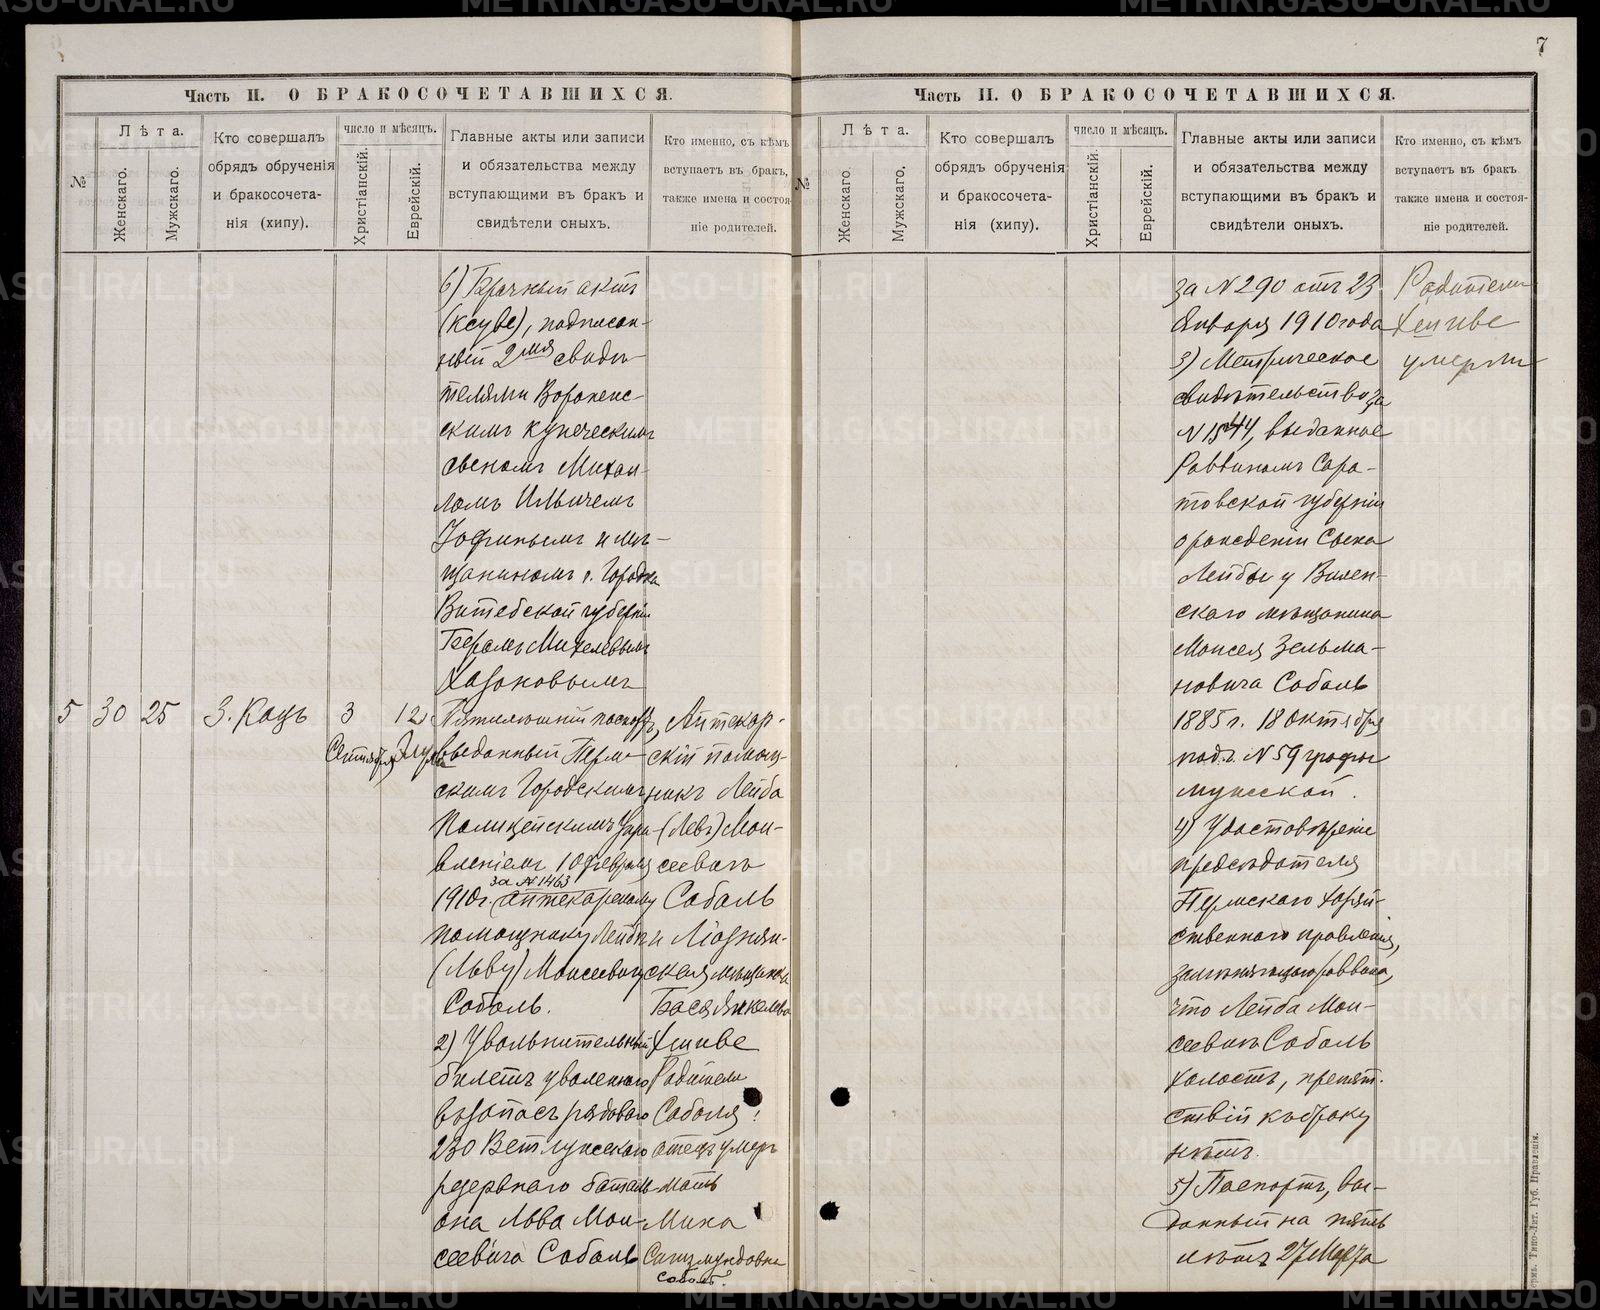 7
Часть II. О БРАКОСОЧЕТАВШИХСЯ.
№
Лѣта.
Женскаго.
Мужскаго.
Кто совершалъ
обрядъ обрученія
и бракосочета-
нія (хипу).
число и мѣсяцъ.
Христіанскій.
Еврейскій.
Главные акты или записи
и обязательства между
вступающими въ бракъ и
свидѣтели оныхъ.
Кто именно, съ кѣмъ
вступаетъ въ бракъ,
также имена и состоя-
ніе родителей.
6) Брачный актъ
(ксуве), подписан-
ный 2мя свидѣ-
телями Воронеж-
скимъ купеческимъ
сыномъ Михаи-
ломъ Ильичемъ
и мѣ-
щаниномъ г. Городка
Витебской губерніи
Беромъ Михелевымъ
Хазановымъ
5
30
25
З. Кацъ
3
Сентября
12
Элула
Пятилѣтній паспортъ,
выданный Перм-
скимъ Городскимъ
Полицейскимъ Упра-
вленіемъ 10 февраля
за №1463
1910г. Аптекарскому
помощнику Лейбѣ
(Льву) Моисеевичу
Соболь.
2) Увольнительный
билетъ уволеннаго
въ запасъ рядового
230 Ветлужскаго
резервнаго баталь-
она Льва Мои-
сеевича Соболь
Аптекар-
скій помощ-
никъ Лейба
(Левъ) Мои-
сеевичъ
Соболь
и Ліознян-
ская мѣщанка
Бася Янкелева
Хешиве
Родители
Соболя:
отецъ умеръ
мать
Мина
Сигизмундовна
Соболь.
Часть II. О БРАКОСОЧЕТАВШИХСЯ.
№
Лѣта.
Женскаго.
Мужскаго.
Кто совершалъ
обрядъ обрученія
и бракосочета-
нія (хипу).
число и мѣсяцъ.
Христіанскій.
Еврейскій.
Главные акты или записи
и обязательства между
вступающими въ бракъ и
свидѣтели оныхъ.
Кто именно, съ кѣмъ
вступаетъ въ бракъ
также имена и состоя-
ніе родителей.
за №290 отъ 23
Января 1910 года
3) Метрическое
свидѣтельство за
№1544, выданное
Раввиномъ Сара-
товской губерніи
о рожденіи сына
Лейбы у Вилен-
скаго мѣщанина
Моисея Зельма-
новича Соболь
1885 г. 18 октября
подъ №59 графы
мужской.
4) Удостовѣреніе
предсѣдателя
Пермскаго хозяй-
ственнаго правленія,
замѣняющаго раввина,
что Лейба Мои-
сеевичъ Соболь
холостъ, препят-
ствій къ браку
нѣтъ.
5) Паспортъ, вы-
данный на пять
лѣтъ 27 Марта
Родители
Хешиве
умерли
Перм. Типо-Лит. Губ. Правленія.
METRIKI.GASO-URAL.RU